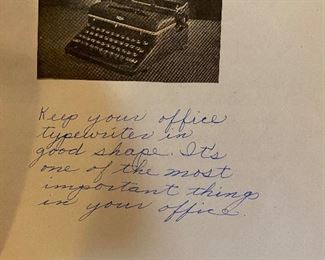 Keep your office
typewriter in
good shape. It's
one of the most
important thing
in your office.